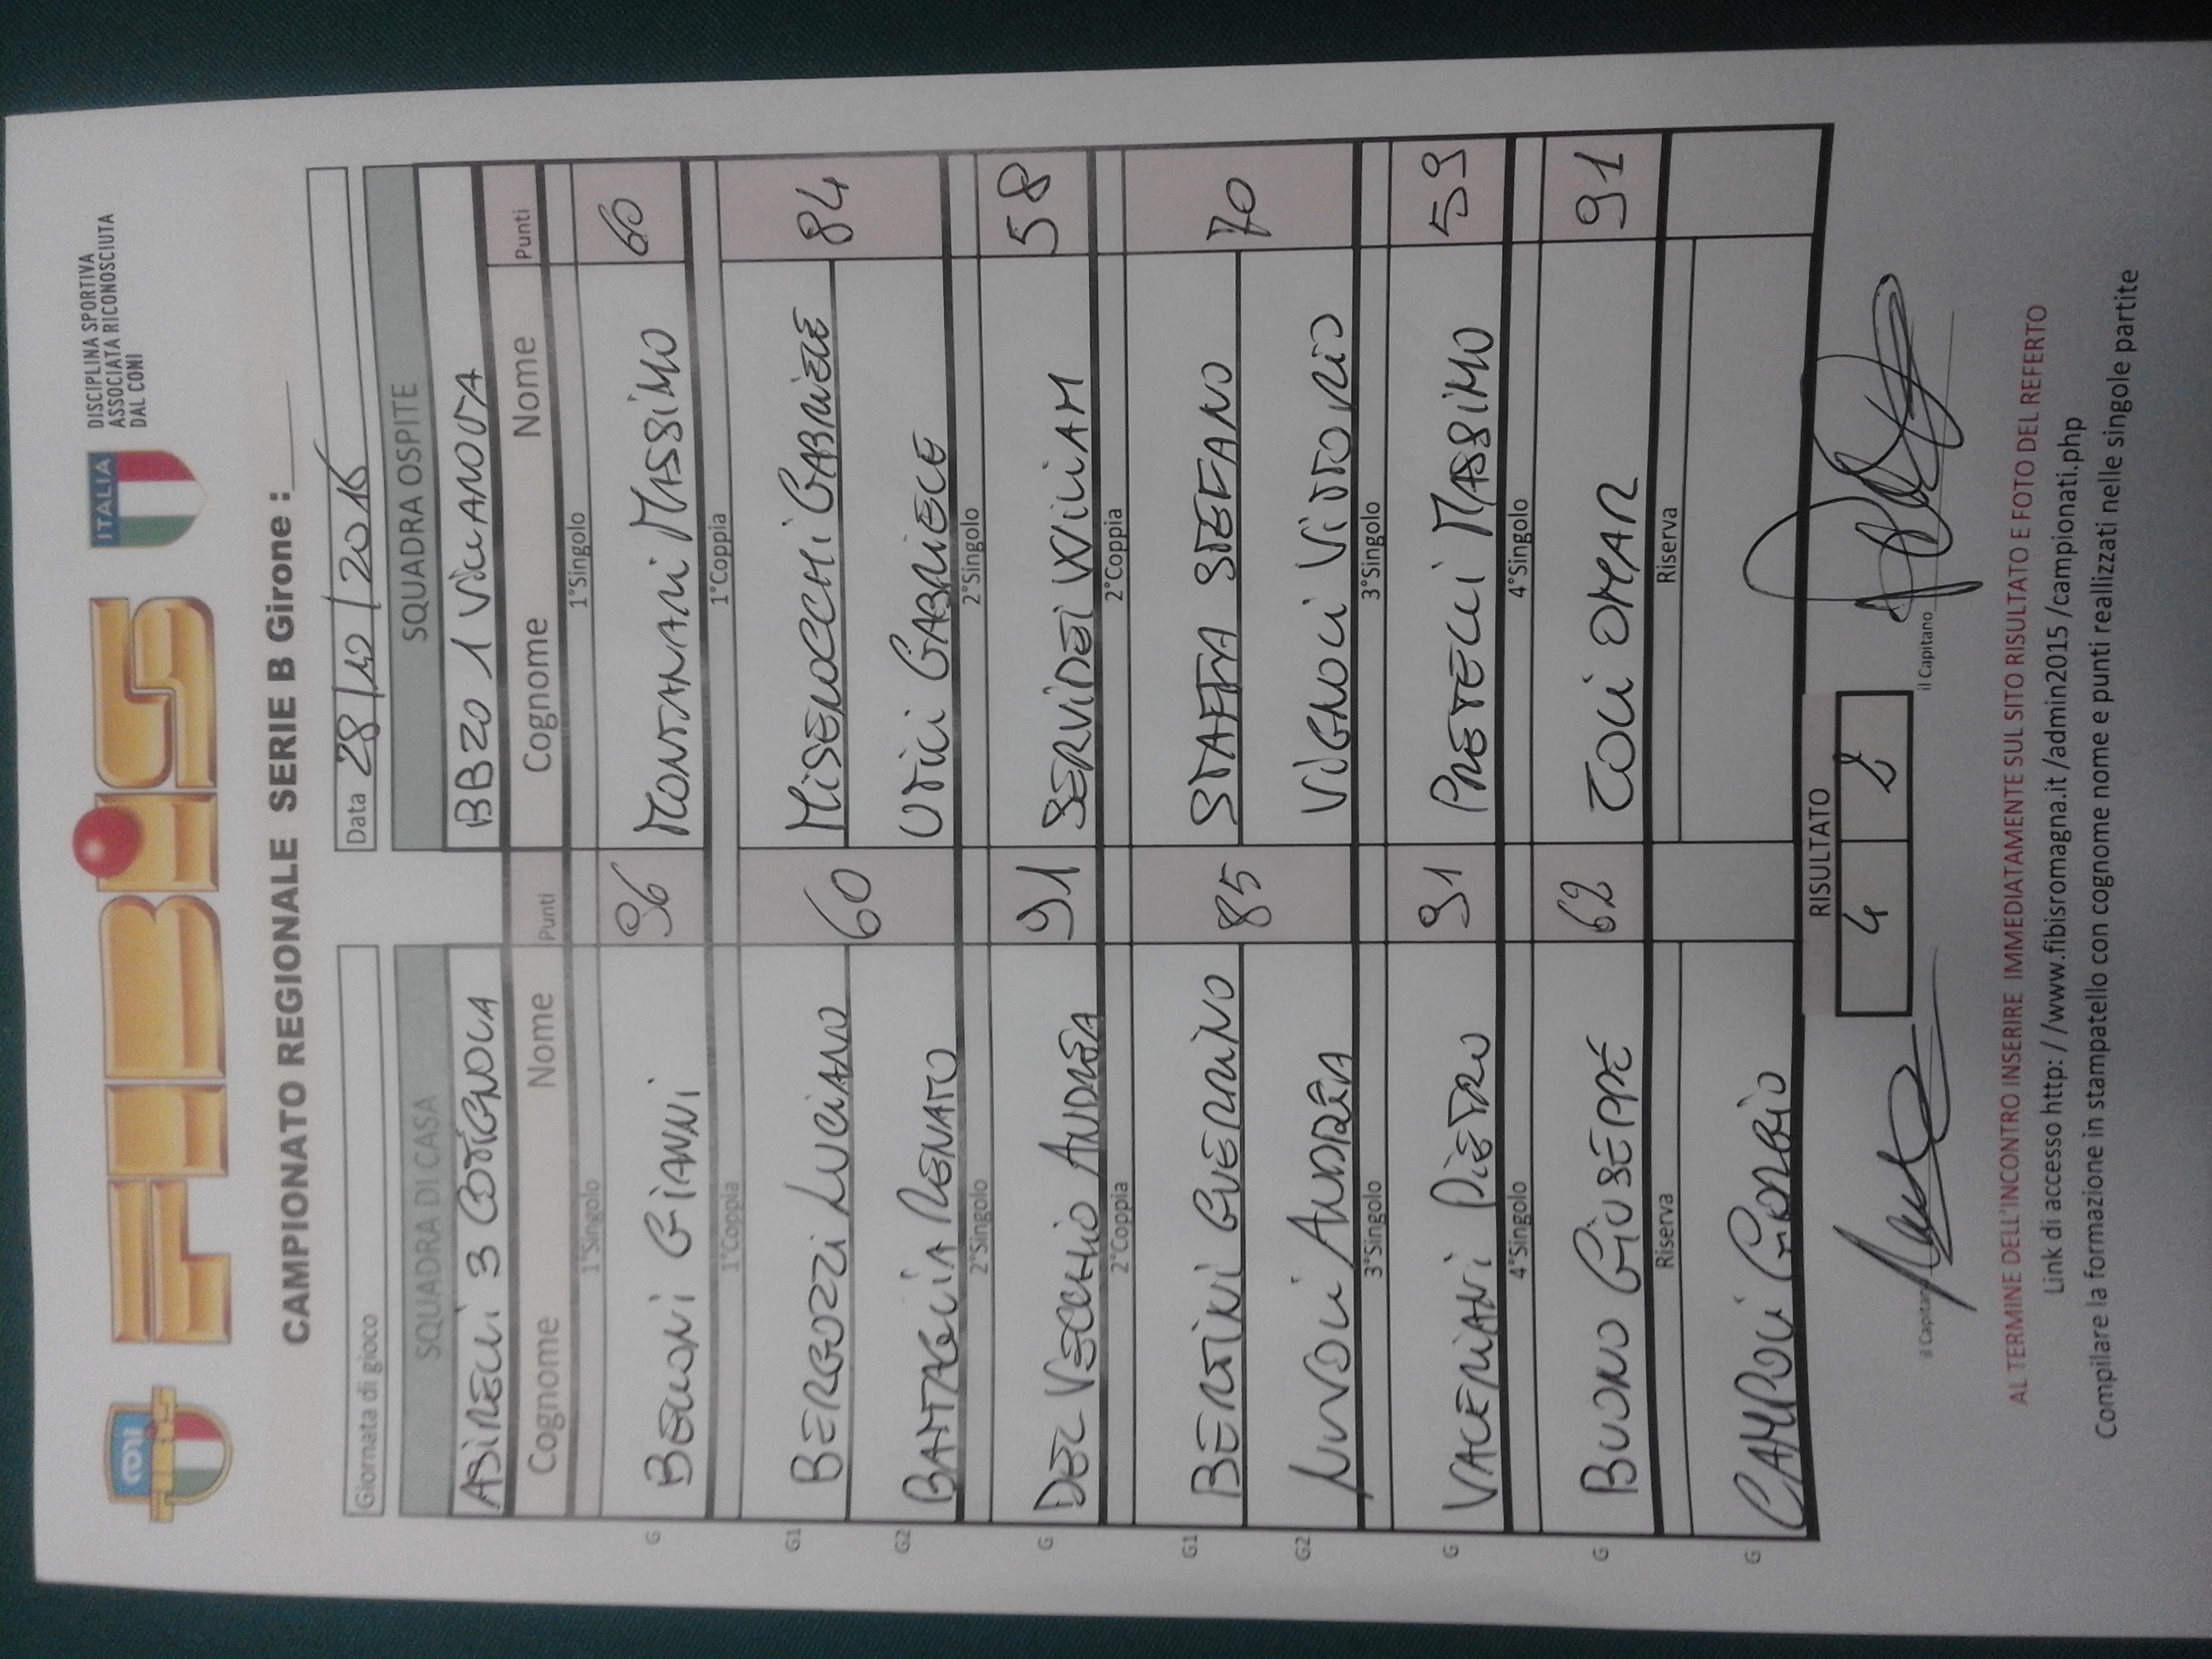 CONI
FIBIS
FIBIS
ITALIA
DISCIPLINA SPORTIVA
ASSOCIATA RICONOSCIUTA
DAL CONI
CAMPIONATO REGIONALE SERIE B Girone :
Giornata di gioco Data 28/12/2016
SQUADRA DI CASA SQUADRA OSPITE
ASIRELLI 3 COTIGNOLA BBZO 1 VILLANOVA
Cognome Nome Punti Cognome Nome Punti
1°Singolo 1°Singolo
G BELLONI GIANNI 96 MONTANARI MASSIMO 60
1°Coppia 1°Coppia
G1 BERGOZZI LUCIANO 60 MISEROCCHI GABRIELE 84
G2 BATTAGLIA RENATO UTILI GABRIELE
2°Singolo 2°Singolo
G DEL VECCHIO ANDREA 91 SERVIDEI WILLIAM 58
2°Coppia 2°Coppia
G1 BERTINI GUERRINO 85 STAFFA STEFANO 70
G2 NUVOLI ANDREA VIGNOLI VITTORIO
3°Singolo 3°Singolo
G VALERIANI PIETRO 91 PRETELLI MASSIMO 59
4°Singolo 4°Singolo
G BUONO GIUSEPPE 62 ZOLI OMAR 91
Riserva Riserva
G CAMPOLI GIORGIO
RISULTATO
4 2
il Capitano il Capitano
AL TERMINE DELL'INCONTRO INSERIRE IMMEDIATAMENTE SUL SITO RISULTATO E FOTO DEL REFERTO
Link di accesso http: / /www.fibisromagna.it /admin2015 /campionati.php
Compilare la formazione in stampatello con cognome nome e punti reallizzati nelle singole partite